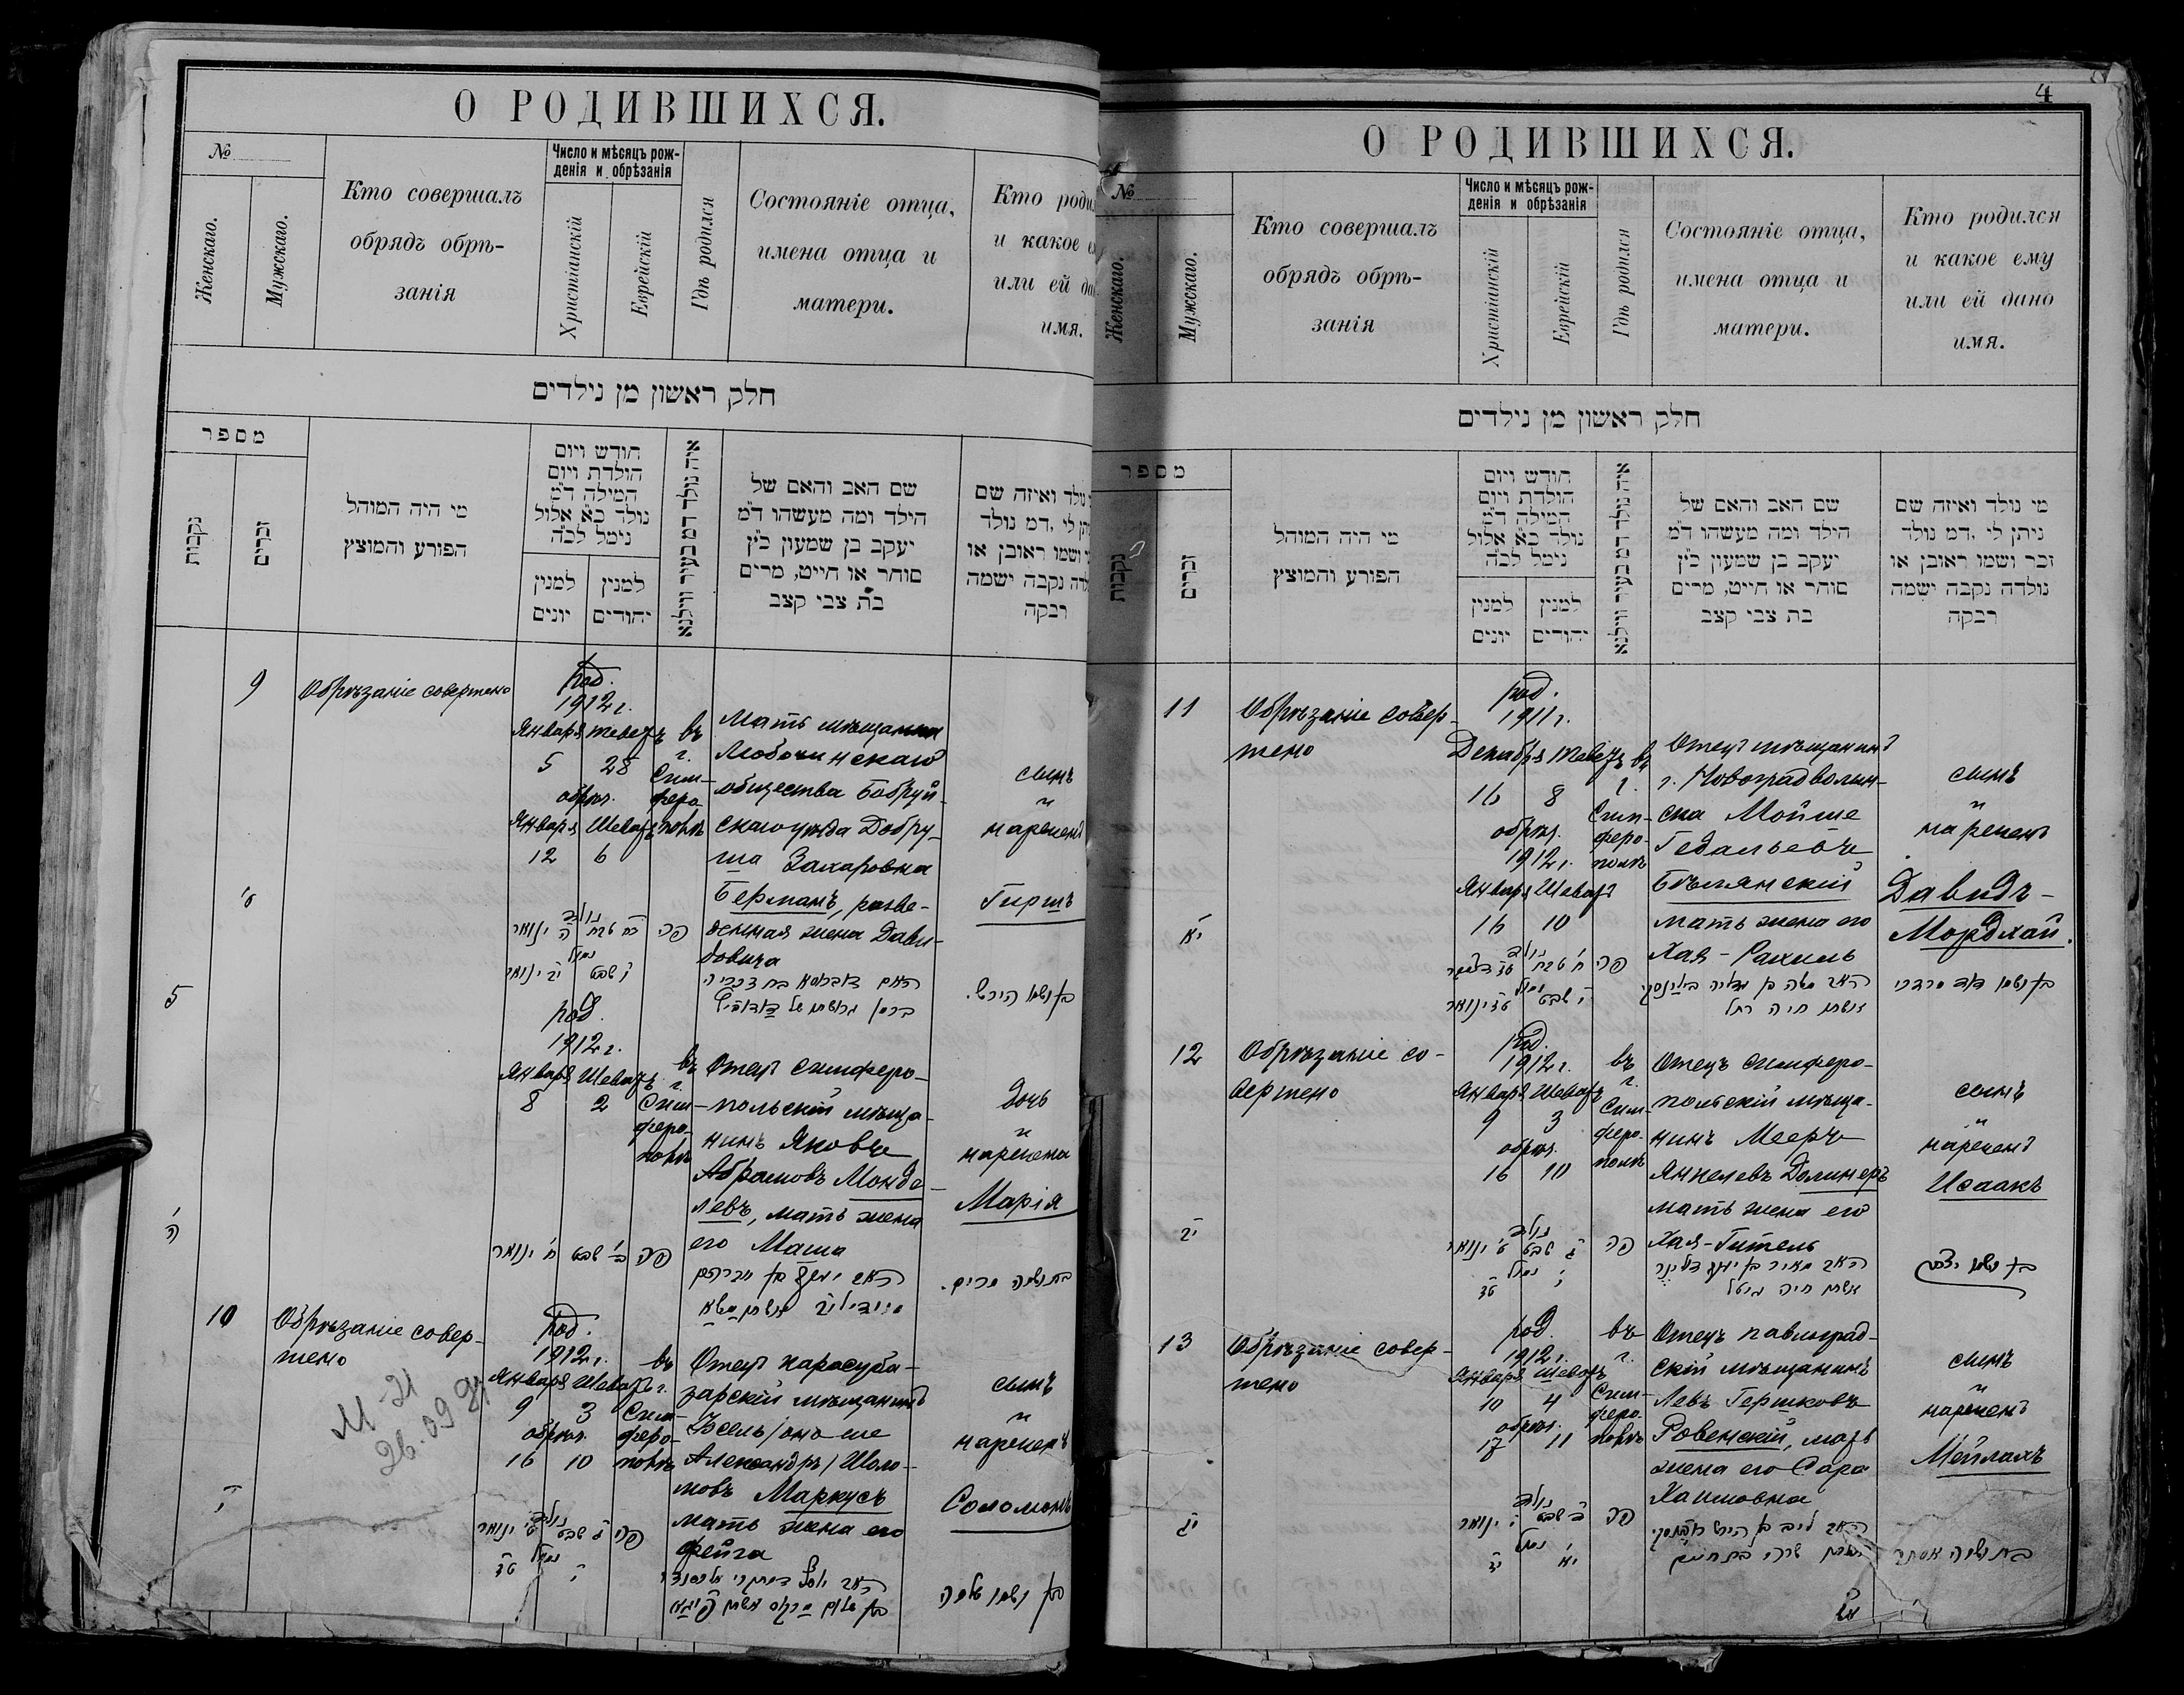 О РОДИВШИХСЯ.
№
Женскаго.
Мужскаго.
Кто совершалъ
обрядъ обрѣ-
занія
Число и мѣсяцъ рож-
денія и обрѣзанія
Христіанскій
Еврейскій
Гдѣ родился
Состояніе отца,
имена отца и
матери.
Кто роди
и какое
или ей да
имя.
חלק ראשון מן נולדים
מספר
נקבות
זכרים
מי היה המוהל
הפורע והמוצץ
חודש ויום
הולדת ויום
המילה ד״מ
נולד כ״א אלול
נימל לכ״ה
למנין
יהודים
למנין
יונים
איה נולד דמ בעיר ווילנא
שם האב והאם של
הילד ומה מעשהו ד״מ
יעקב בן שמעון כ״ץ
סוחר או חייט, מרים
בת צבי קצב
נולד ואיזה שם
לי .דמ נולד
ושמו ראובן או
נקבה ישמה
רבקה
9
Обрѣзаніе совершено
род.
1912 г.
Января Тевезъ
5 28
обрѣз.
Января Шеватъ
12 6
въ
г.
Сим-
феро-
полѣ
Мать мѣщанка
Любонинскаго
общества Бобруй-
скаго уѣзда Добру-
ша Захаровна
Берманъ, разве-
денная жена Дави-
довича
сынъ
и
нареченъ
Гиршъ
ט׳
נולד
כח טבת ה ינואר
נמול
ו שבט יב ינואר
פה
בן ושמו הירש.
5
род.
1912 г.
Января Шеватъ
8 2
въ
г.
Сим-
феро-
полѣ
Отецъ симферо-
польскій мѣща-
нинъ Яковъ
Абрамовъ Монде-
левъ, мать жена
его Маша
Дочь
и
наречена
Марія
ה׳
ב׳ שבט ח׳ ינואר
פה
בת ושמה מרים.
10
Обрѣзаніе совер-
шено
М-21
26.09.
род.
1912 г.
Января Шеватъ
9 3
обрѣз.
16 10
въ
г.
Сим-
феро-
полѣ
Отецъ карасуба-
зарскій мѣщанинъ
Іосель/онъ же
Александръ/Шоло-
мовъ Маркусъ
мать жена его
Фейга
сынъ
и
нареченъ
Соломонъ
י׳
נולד
ג שבט ט׳ ינואר
נמול
י טז
פה
בן ושמו שלמה
4
О РОДИВШИХСЯ.
№
Женскаго.
Мужскаго.
Кто совершалъ
обрядъ обрѣ-
занія
Число и мѣсяцъ рож-
денія и обрѣзанія
Христіанскій
Еврейскій
Гдѣ родился
Состояніе отца,
имена отца и
матери.
Кто родился
и какое ему
или ей дано
имя.
חלק ראשון מן נולדים
מספר
נקבות
זכרים
מי היה המוהל
הפורע והמוצץ
חודש ויום
הולדת ויום
המילה ד״מ
נולד כ״א אלול
נימל לכ״ה
למנין
יהודים
למנין
יונים
איה נולד דמ בעיר ווילנא
שם האב והאם של
הילד ומה מעשהו ד״מ
יעקב בן שמעון כ״ץ
סוחר או חייט, מרים
בת צבי קצב
מי נולד ואיזה שם
ניתן לי .דמ נולד
זכר ושמו ראובן או
נולדה נקבה ישמה
רבקה
11
Обрѣзаніе совер-
шено
род.
1911 г.
Декабря Тевезъ
16 8
обрѣз.
1912 г.
Января Шеватъ
16 10
въ
г.
Сим-
феро-
полѣ
Отецъ мѣщанинъ
г. Новоградволын-
ска Мойше
Гедальевъ
Бѣлянскій
мать жена его
Хая-Рахиль
сынъ
и
нареченъ
Давидъ-
Мордхай.
יא
נולד
ח׳ טבת טז דצמבר
נמול
י שבט טז ינואר
פה
האב משה בן גדליה בילינסקי
ואשתו חיה רחל
בן ושמו דוד מרדכי
12
Обрѣзаніе со-
вершено
род.
1912 г.
Января Шеватъ
9 3
обрѣз.
16 10
въ
г.
Сим-
феро-
полѣ
Отецъ симферо-
польскій мѣща-
нинъ Мееръ
Янкелевъ Долинеръ
мать жена его
Хая-Гитель
сынъ
и
нареченъ
Исаакъ
יב
נולד
ג שבט ט׳ ינואר
נמול
י טז
פה
אשתו חיה גיטל
בן ושמו יצחק
13
Обрѣзаніе совер-
шено
род.
1912 г.
Января Шеватъ
10 4
обрѣз.
17 11
въ
г.
Сим-
феро-
полѣ
Отецъ павлоград-
скій мѣщанинъ
Левъ Гершковъ
Ровенскій, мать
жена его Сара
Хаимовна
сынъ
и
нареченъ
Мейлахъ
יג
נולד
י ינואר
נמול
יא יז
פה